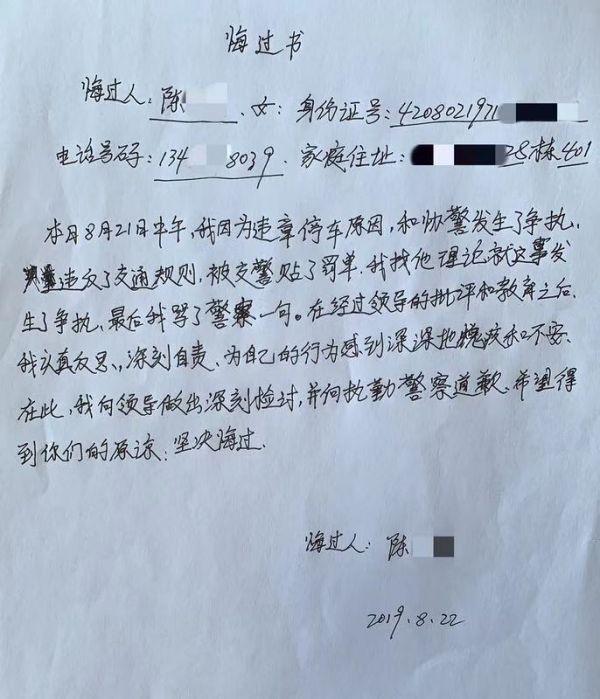 悔过书
悔过人:陈 、女:身份证号:4208021971
电话号码:134 8039、家庭住址: 28栋401
本月8月21日中午,我因为违章停车原因,和协警发生了争执,
违反了交通规则,被交警贴了罚单,我找他理论就这事发
生了争执,最后我骂了警察一句。在经过领导的批评和教育之后,
我认真反思、深刻自责、为自己的行为感到深深地愧疚和不安、
在此,我向领导做出深刻检讨,并向执勤警察道歉,希望得
到你们的原谅:坚决悔过.
悔过人:陈
2019.8.22